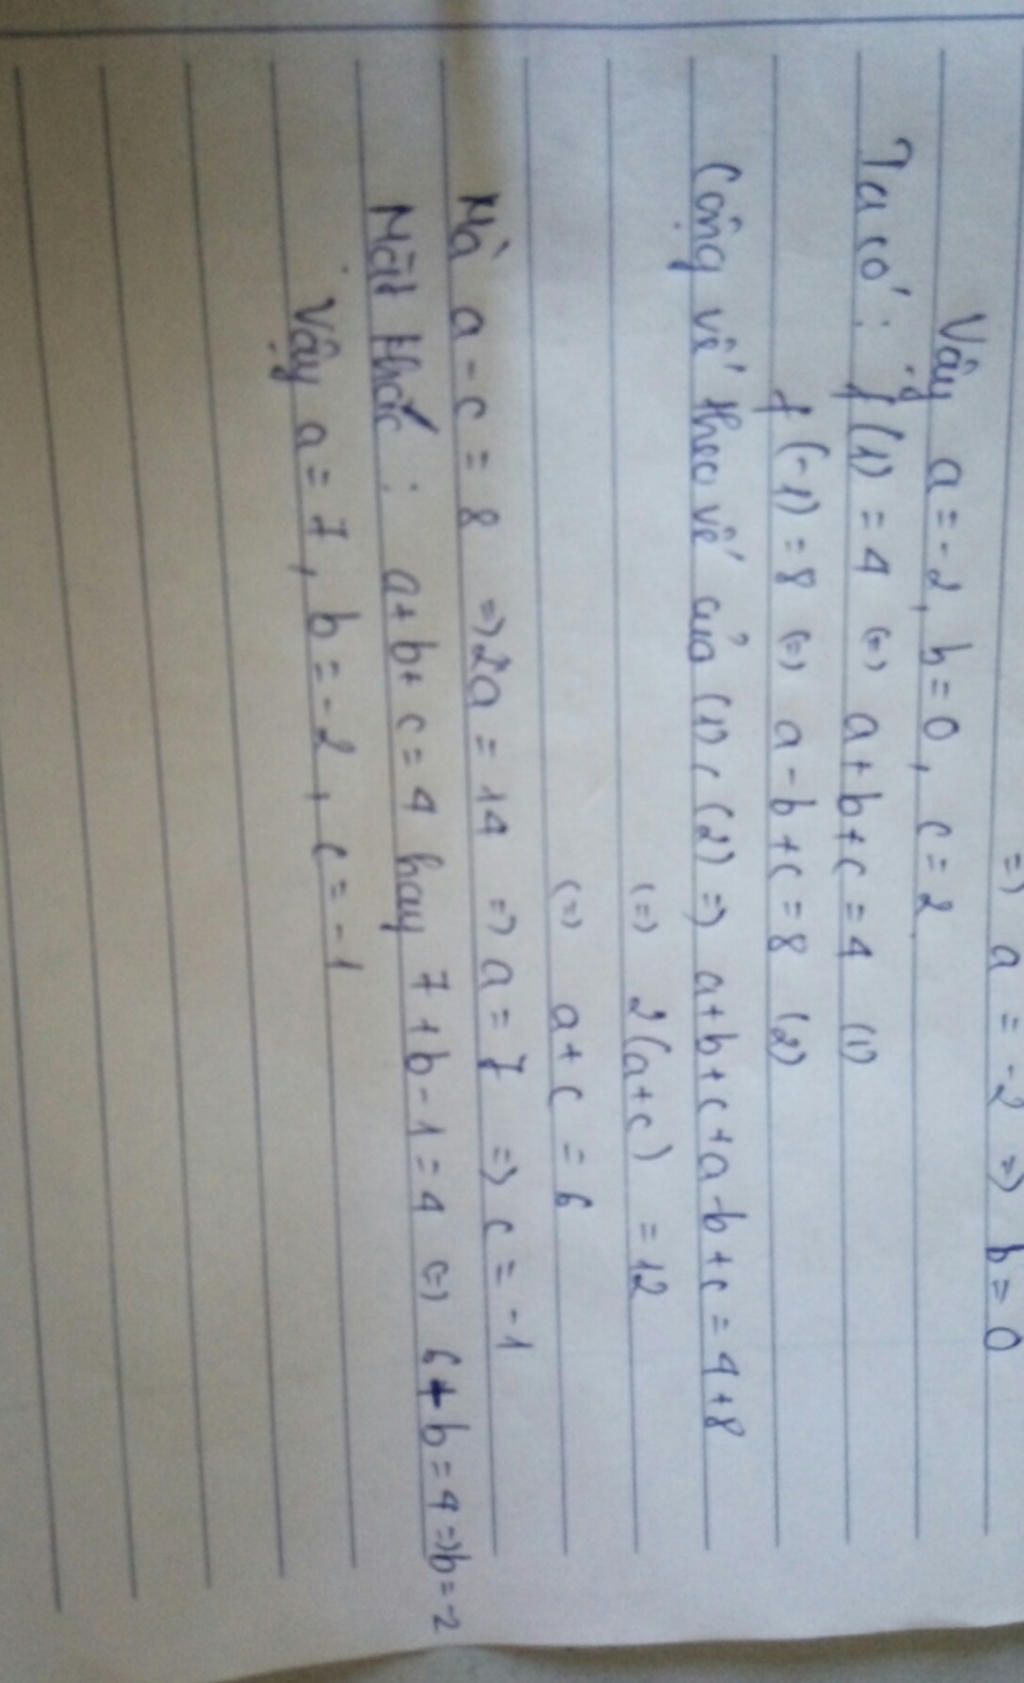 => a = -2 => b = 0
Vậy a = -2, b = 0, c = 2.
Ta có: f(1) = 4 (=) a + b + c = 4 (1)
f(-1) = 8 (=) a - b + c = 8 (2)
Cộng vế theo vế của (1), (2) => a + b + c + a - b + c = 4 + 8
(=) 2(a + c) = 12
(=) a + c = 6
Mà a - c = 8 => 2a = 14 => a = 7 => c = -1
Mặt khác: a + b + c = 4 hay 7 + b - 1 = 4 (=) 6 + b = 4 => b = -2
Vậy a = 7, b = -2, c = -1